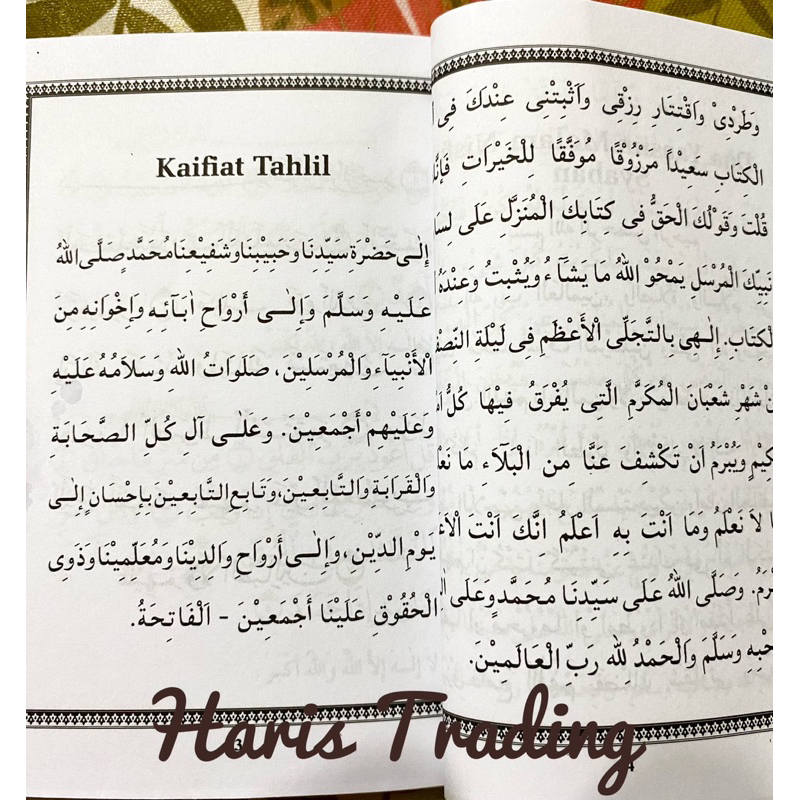 Kaifiat Tahlil
إِلَى حَضْرَةِ سَيِّدِنَا وَحَبِيْبِنَا وَشَفِيْعِنَا مُحَمَّدٍ صَلَّى اللهُ
عَلَيْهِ وَسَلَّمَ وَإِلَى أَرْوَاحِ اٰبَآئِهِ وَإِخْوَانِهِ مِنَ
الْأَنْبِيَآءِ وَالْمُرْسَلِيْنَ، صَلَوَاتُ اللهِ وَسَلاَمُهُ عَلَيْهِ
وَعَلَيْهِمْ أَجْمَعِيْنَ. وَعَلَى آلِ كُلِّ الصَّحَابَةِ
وَالْقَرَابَةِ وَالتَّابِعِيْنَ، وَتَابِعِ التَّابِعِيْنَ بِإِحْسَانٍ إِلَى
يَوْمِ الدِّيْنِ، وَإِلَى أَرْوَاحِ وَالِدِيْنَا وَمُعَلِّمِيْنَا وَذَوِى
الْحُقُوْقِ عَلَيْنَا أَجْمَعِيْنَ - اَلْفَاتِحَةُ.
3
وَطَرْدِىْ وَاقْتِتَارِ رِزْقِى وَاَثْبِتْنِى عِنْدَكَ فِى
الْكِتَابِ سَعِيْدًا مَرْزُوْقًا مُوَفَّقًا لِلْخَيْرَاتِ
قُلْتَ وَقَوْلُكَ الْحَقُّ فِى كِتَابِكَ الْمُنَزَّلِ عَلَى
نَبِيِّكَ الْمُرْسَلِ يَمْحُوْ اللهُ مَا يَشَآءُ وَيُثْبِتُ وَعِنْدَهُ
الْكِتَابِ. إِلٰهِى بِالتَّجَلِّى الْأَعْظَمِ فِى لَيْلَةِ
شَهْرِ شَعْبَانَ الْمُكَرَّمِ الَّتِى يُفْرَقُ فِيْهَا كُلُّ
وَيُبْرَمُ اَنْ تَكْشِفَ عَنَّا مِنَ الْبَلَآءِ مَا
لاَ نَعْلَمُ وَمَا اَنْتَ بِهِ اَعْلَمُ اِنَّكَ اَنْتَ
وَصَلَّى اللهُ عَلَى سَيِّدِنَا مُحَمَّدٍ وَعَلَى
وَسَلَّمَ وَالْحَمْدُ لِلهِ رَبِّ الْعَالَمِيْنَ.
4
Haris Trading